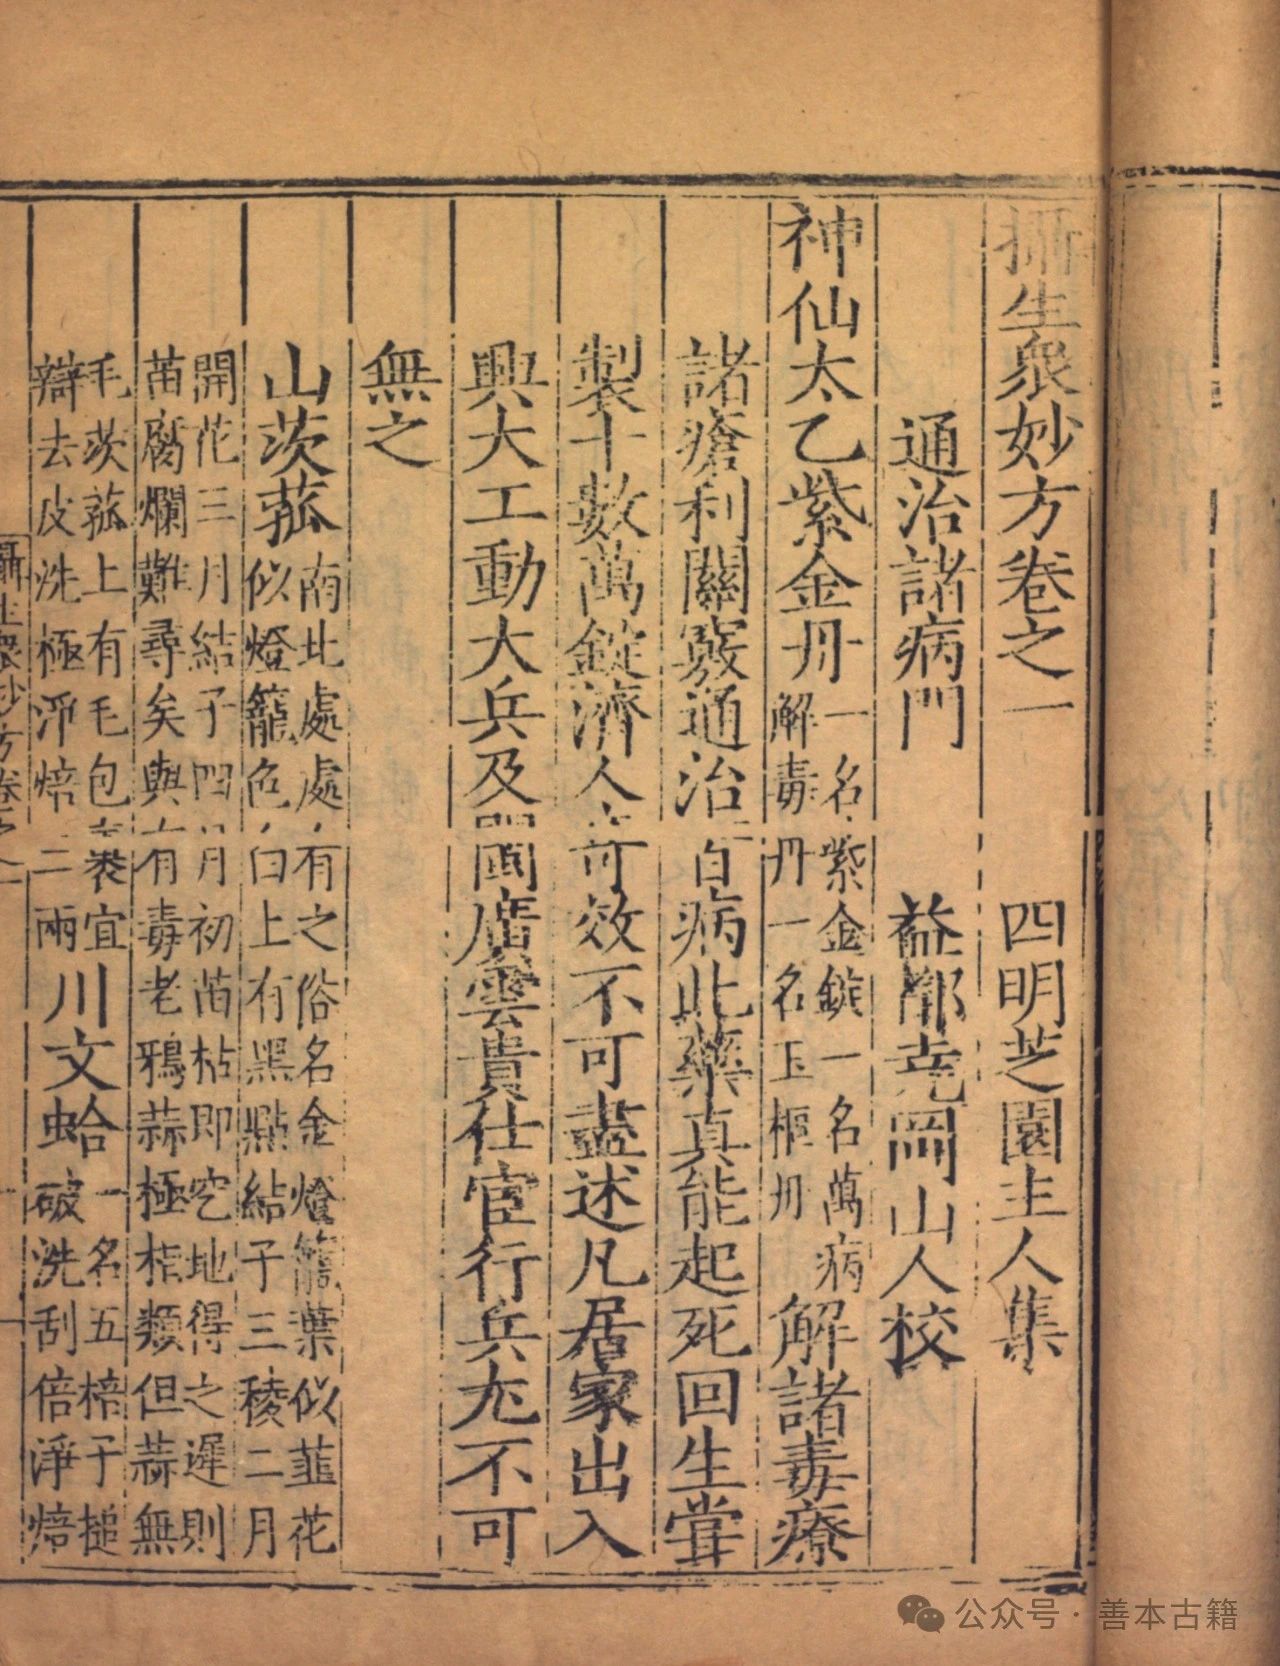 攝生衆妙方卷之一
四明芝園主人集
通治諸病門
益都堯岡山人校
神仙太乙紫金丹
一名紫金錠一名萬病
解毒丹一名玉樞丹
解諸毒療
諸瘡利關竅通治百病此藥真能起死回生甞
製十數萬錠濟人奇效不可盡述凡居家出入
興大工動大兵及閩廣雲貴仕宦行兵尤不可
無之
山茨菰
南北處處有之俗名金燈籠葉似韮花
似燈籠色白上有黑點結子三稜二月
開花三月結子四月初苗枯即空地得之遲則
苗腐爛難尋矣與有毒老鴉蒜極相類但蒜無
毛茨菰上有毛包裹宜
辯去皮洗極淨焙二兩
川文蛤
一名五棓子搥
破洗刮倍淨焙
攝生衆妙方卷之一
公众号·善本古籍